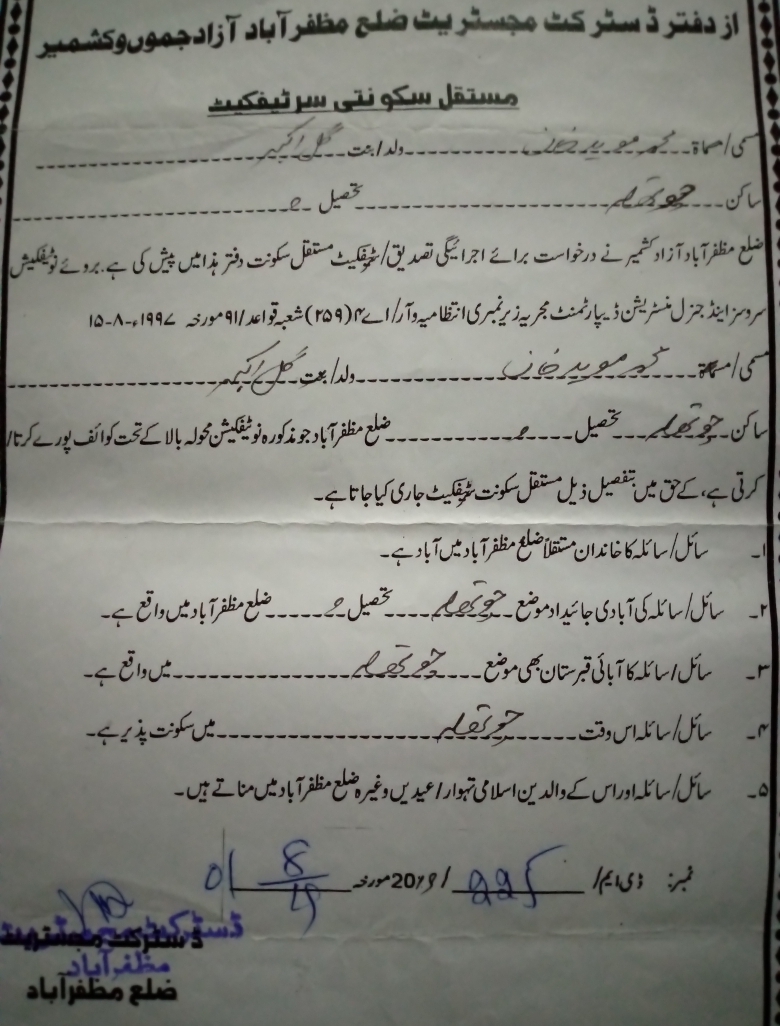 از دفتر ڈسٹرکٹ مجسٹریٹ ضلع مظفرآباد آزاد جموں و کشمیر
مستقل سکونتی سرٹیفکیٹ
مسمی/مسماۃ محمد موید خان ولد/بنت گل اکبر
ساکن تحصیل
ضلع مظفرآباد آزاد کشمیر نے درخواست برائے اجرائیگی تصدیق/سرٹیفکیٹ مستقل سکونت دفتر ہذا میں پیش کی ہے۔ بروئے نوٹیفکیشن
سروسز اینڈ جنرل منسٹریشن ڈیپارٹمنٹ مجریہ زیر نمبری انتظامیہ و آر/اے ۴ (۲۵۹) شعبہ قواعد/۹۱ مورخہ ۱۹۹۷ء-۸-۱۵
مسمی/مسماۃ محمد موید خان ولد/بنت گل اکبر
ساکن تحصیل ضلع مظفرآباد جو مذکورہ نوٹیفکیشن محولہ بالا کے تحت کوائف پورے کرتا/
کرتی ہے، کے حق میں بتفصیل ذیل مستقل سکونت سرٹیفکیٹ جاری کیا جاتا ہے۔
۱۔ سائل/سائلہ کا خاندان مستقلاً ضلع مظفرآباد میں آباد ہے۔
۲۔ سائل/سائلہ کی آبادی جائیداد موضع تحصیل ضلع مظفرآباد میں واقع ہے۔
۳۔ سائل/سائلہ کا آبائی قبرستان بھی موضع میں واقع ہے۔
۴۔ سائل/سائلہ اس وقت میں سکونت پذیر ہے۔
۵۔ سائل/سائلہ اور اس کے والدین اسلامی تہوار/عیدیں وغیرہ ضلع مظفرآباد میں مناتے ہیں۔
نمبر: ڈی ایم/ /20 مورخہ
ڈسٹرکٹ مجسٹریٹ
مظفرآباد
ڈسٹرکٹ مجسٹریٹ
ضلع مظفرآباد